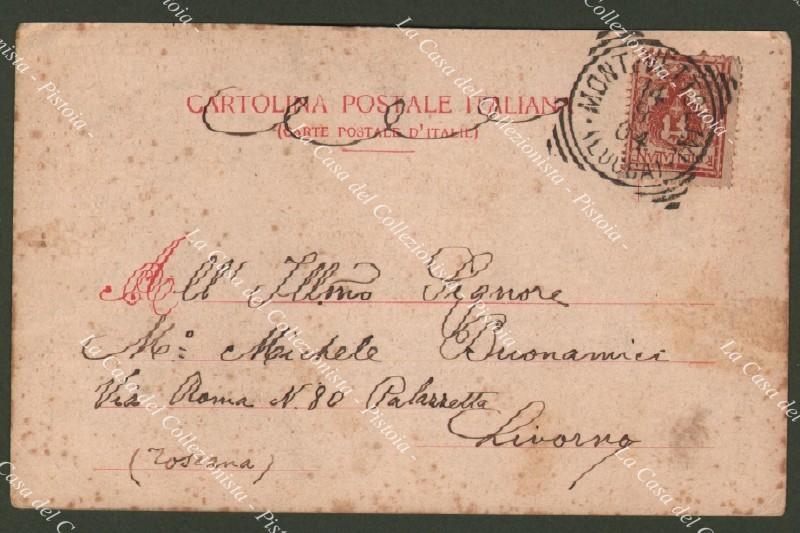 CARTOLINA POSTALE ITALIANA
(CARTE POSTALE D'ITALIE)
(LUCCA)
04
All Illmo Signore
Mo: Michele Buonamici
Via Roma N. 80 Palazzetta
Livorno
(Toscana)
La Casa del Collezionista - Pistoia -